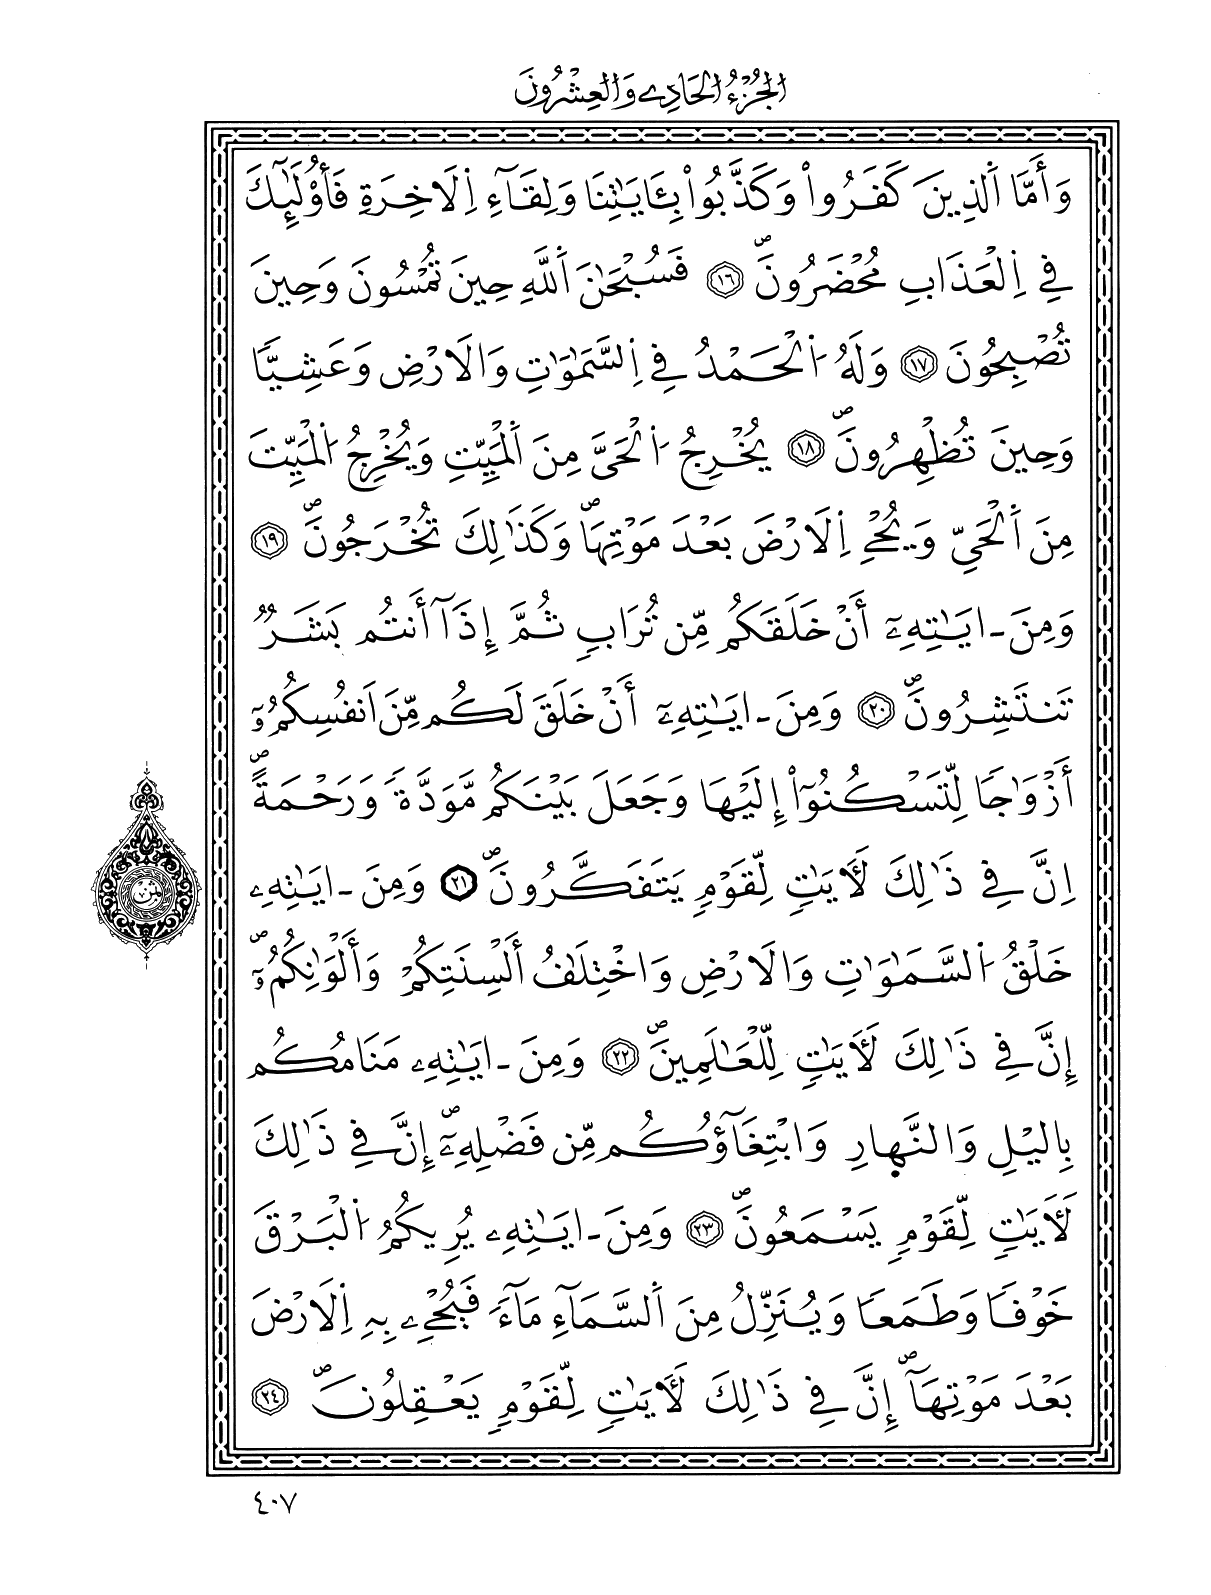 الجُزْءُ الحَادِے وَالعِشْرُونَ
وَأَمَّا اَ۬لذِينَ كَفَرُواْ وَكَذَّبُواْ بِـَٔايَٰتِنَا وَلِقَآءِ اِ۬لَاخِرَةِ فَأُوْلَٰٓئِكَ
فِے اِ۬لْعَذَابِ مُحْضَرُونَۖ ١٦ فَسُبْحَٰنَ اَ۬للَّهِ حِينَ تُمْسُونَ وَحِينَ
تُصْبِحُونَ ١٧ وَلَهُ اُ۬لْحَمْدُ فِے اِ۬لسَّمَٰوَٰتِ وَالَارْضِ وَعَشِيّاٗ
وَحِينَ تُظْهِرُونَۖ ١٨ يُخْرِجُ اُ۬لْحَيَّ مِنَ اَ۬لْمَيِّتِ وَيُخْرِجُ اُ۬لْمَيِّتَ
مِنَ اَ۬لْحَيِّ وَيُحْيِ اِ۬لَارْضَ بَعْدَ مَوْتِهَاۖ وَكَذَٰلِكَ تُخْرَجُونَۖ ١٩
وَمِنَ ـ ايَٰتِهِۦٓ أَنْ خَلَقَكُم مِّن تُرَابٖ ثُمَّ إِذَآ أَنتُم بَشَرٞ
تَنتَشِرُونَۖ ٢٠ وَمِنَ ـ ايَٰتِهِۦٓ أَنْ خَلَقَ لَكُم مِّنَ اَنفُسِكُمُۥٓ
أَزْوَٰجاٗ لِّتَسْكُنُوٓاْ إِلَيْهَا وَجَعَلَ بَيْنَكُم مَّوَدَّةٗ وَرَحْمَةًۖ
اِنَّ فِے ذَٰلِكَ لَأٓيَٰتٖ لِّقَوْمٖ يَتَفَكَّرُونَۖ ٢١ وَمِنَ ـ ايَٰتِهِۦ
خَلْقُ اُ۬لسَّمَٰوَٰتِ وَالَارْضِ وَاخْتِلَٰفُ أَلْسِنَتِكُمْ وَأَلْوَٰنِكُمُۥٓۖ
إِنَّ فِے ذَٰلِكَ لَأٓيَٰتٖ لِّلْعَٰلَمِينَۖ ٢٢ وَمِنَ ـ ايَٰتِهِۦ مَنَامُكُم
بِاليْلِ وَالنَّهِارِ وَابْتِغَآؤُكُم مِّن فَضْلِهِۦٓۖ إِنَّ فِے ذَٰلِكَ
لَأٓيَٰتٖ لِّقَوْمٖ يَسْمَعُونَۖ ٢٣ وَمِنَ ـ ايَٰتِهِۦ يُرِيكُمُ اُ۬لْبَرْقَ
خَوْفاٗ وَطَمَعاٗ وَيُنَزِّلُ مِنَ اَ۬لسَّمَآءِ مَآءٗ فَيُحْيِۦ بِهِ اِ۬لَارْضَ
بَعْدَ مَوْتِهَآۖ إِنَّ فِے ذَٰلِكَ لَأٓيَٰتٖ لِّقَوْمٖ يَعْقِلُونَۖ ٢٤
ثمن
٤٠٧